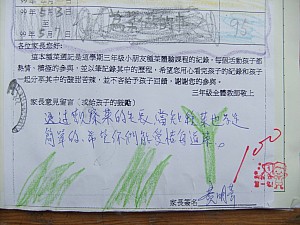 各位家長您好:
這本種菜週記是這學期三年級小朋友種菜體驗課程的紀錄,每個活動孩子都
熱情、積極的參與,並以筆紀錄其中的歷程,希望您用心看完孩子的紀錄和孩子
一起分享其中的酸甜苦辣,並不吝給予孩子回饋,謝謝您的參與。
三年級全體教師敬上
家長意見留言(或給孩子的鼓勵)
透過觀察菜的生長,當能種菜也不是
簡單的。希望你們能愛惜有蔬菜。
家長簽名
100